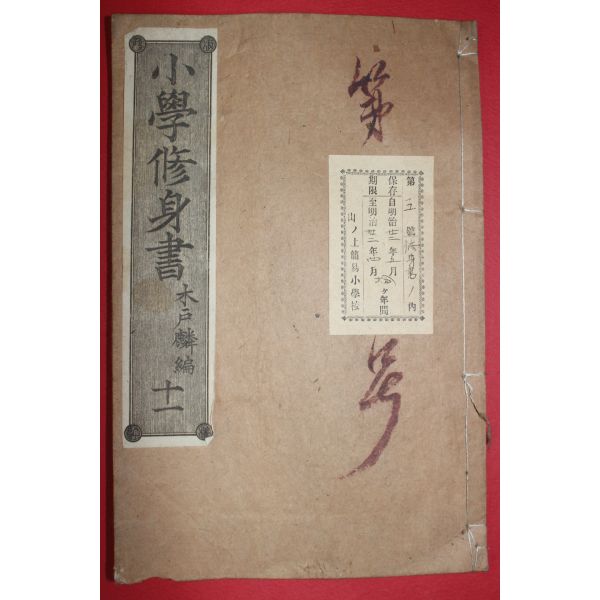 第
号
第五號修身書ノ内
保存自明治廿三年五月
期限至明治 年四月 ヶ年間
山ノ上簡易小學校
小學修身書
木戸麟編
十一